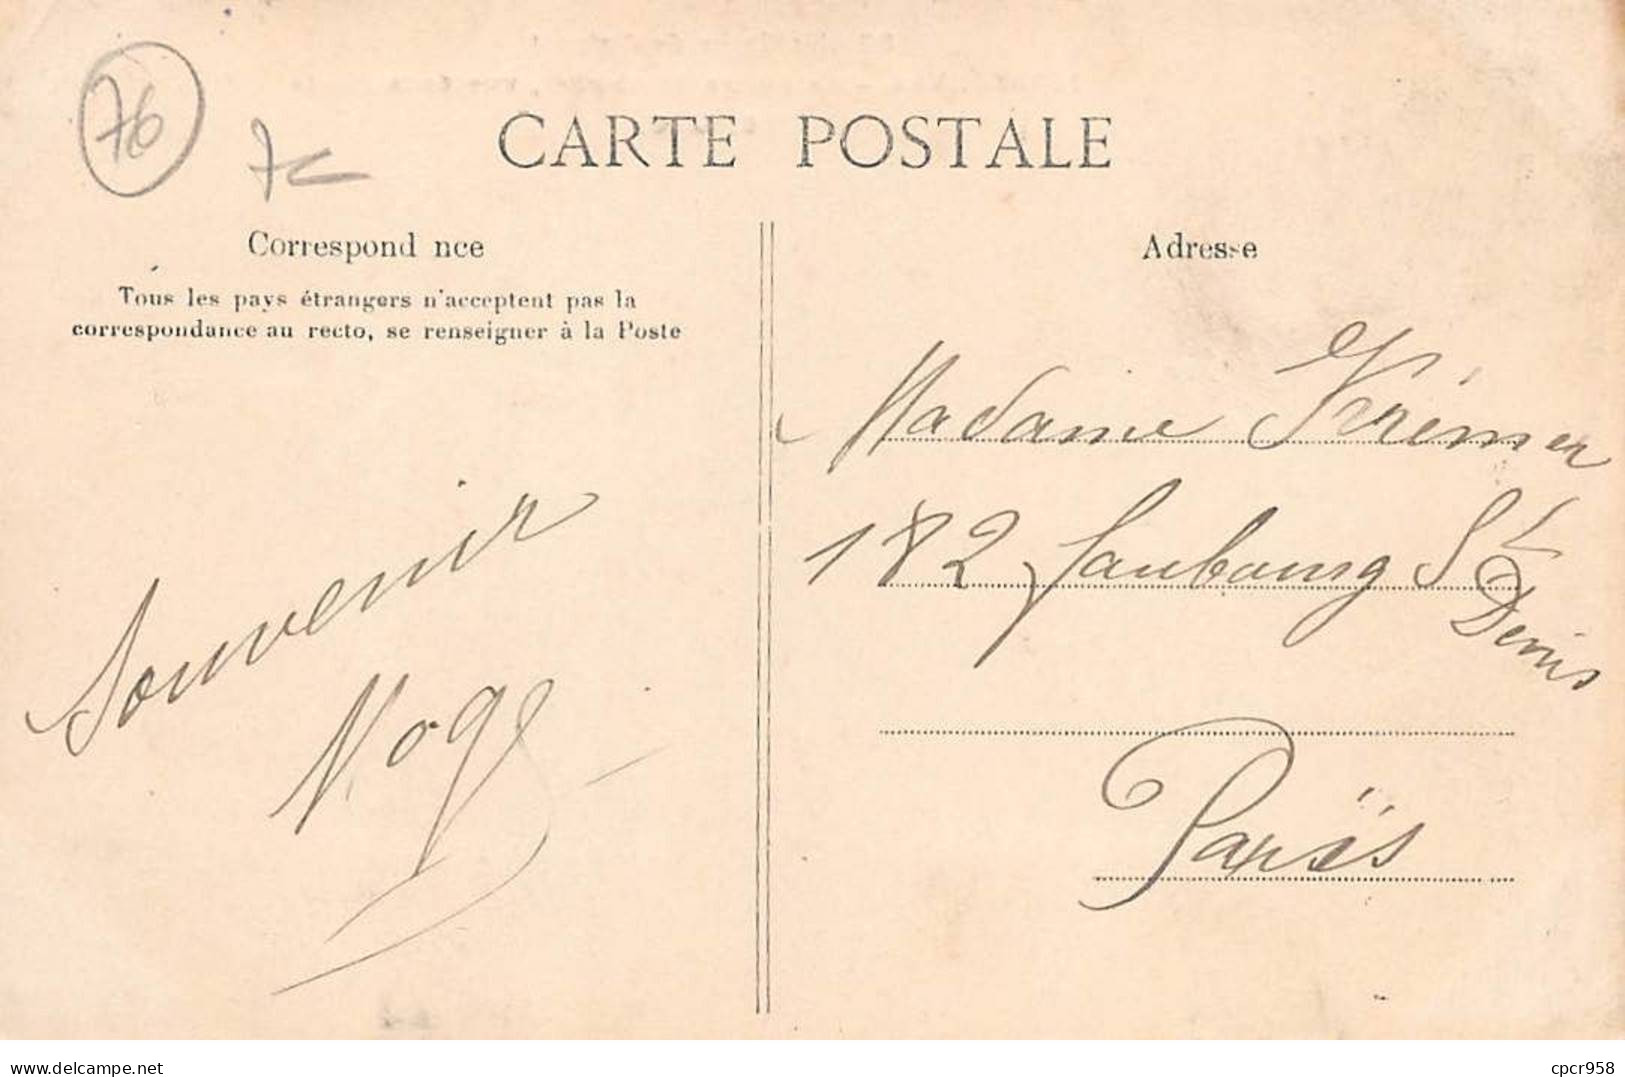 76
CARTE POSTALE
Correspond nce
Tous les pays étrangers n'acceptent pas la
correspondance au recto, se renseigner à la Poste
Souvenir
Adresse
Madame
182 faubourg St
Denis
Paris
Website: www.delcampe.net
cpcr958